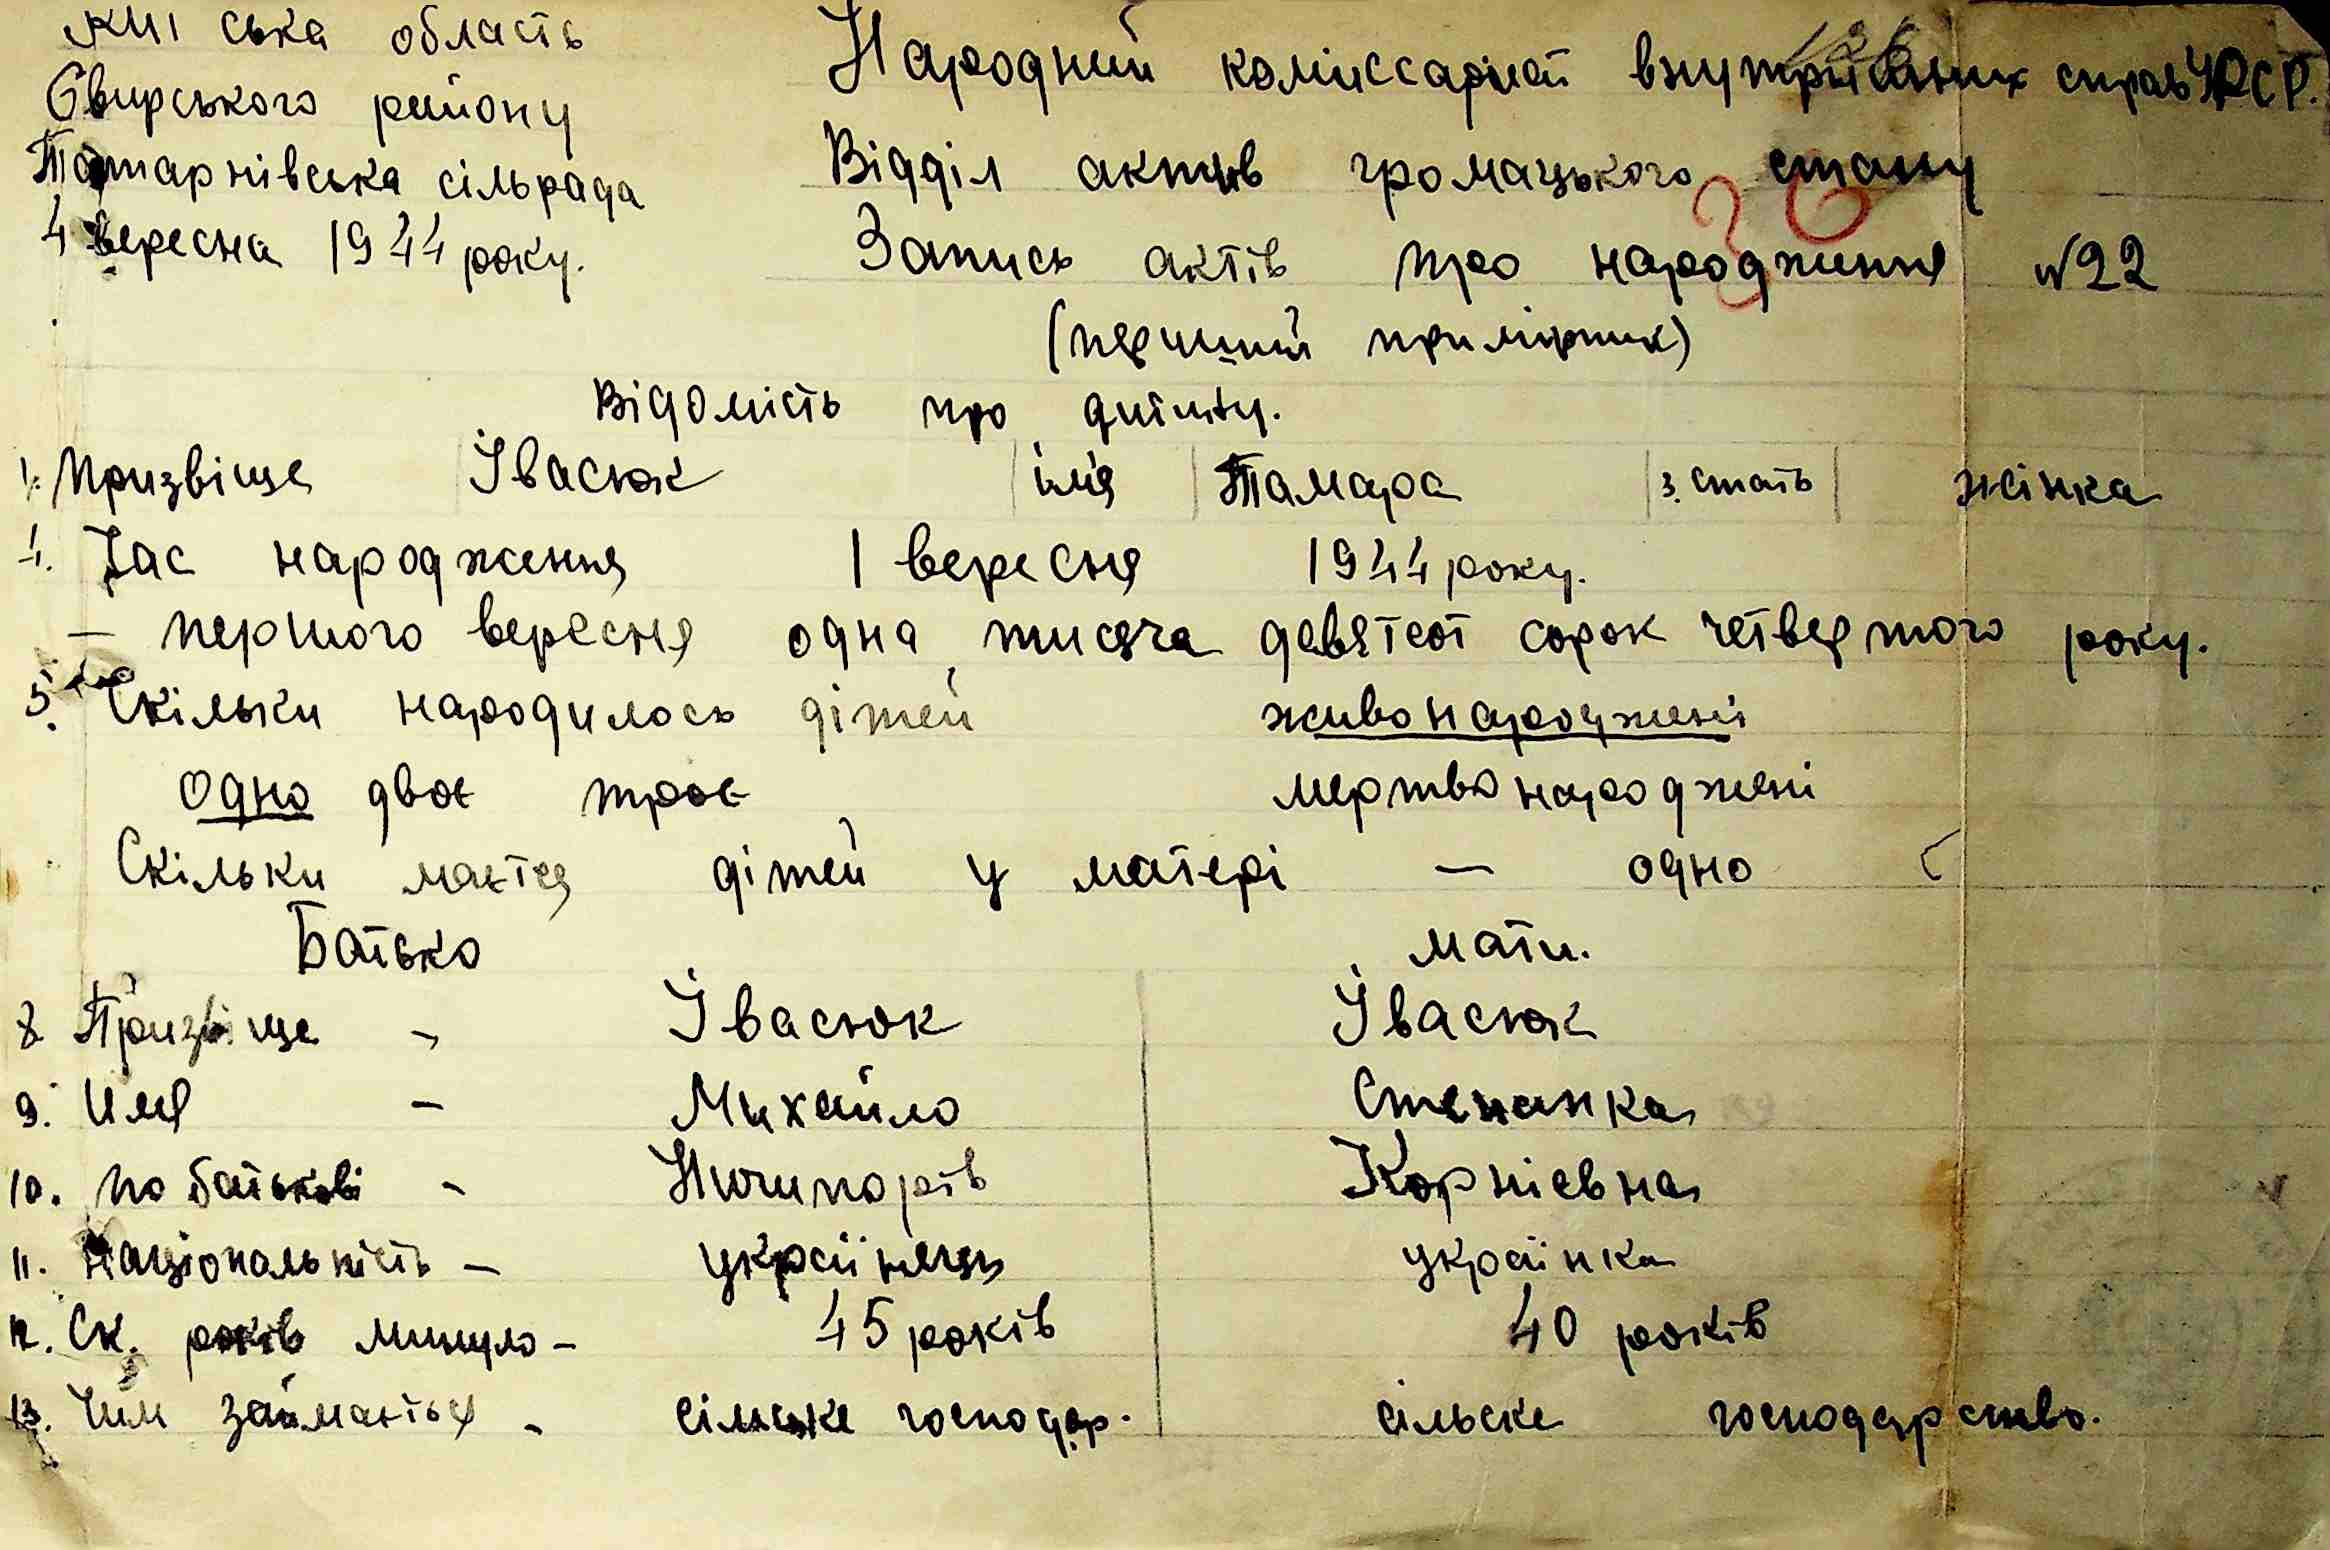 ська область
Народний комиссаріат внутрішних справ УРСР.
Сквирського району
Татарнівська сільрада
Відділ актів громацького стану
4 вересна 1944 року.
Запись актів про народження №22
(перший примірник)
Відомість про дитину.
1. Призвіще Івасюк імя Тамара 3. стать жінка
4. Час народження 1 вересня 1944 року.
— першого вересня одна тисяча девятсот сорок четвертого року.
5. Скільки народилось дітей живонароджені
одно двоє троє мертвонароджені
Скільки маєтся дітей у матері — одно
Батько мати.
8 Призвіще - Івасюк Івасюк
9. Имя - Михайло Степанка
10. по батькові - Ничипорів Корніевна
11. Національність - українець українка
12. Ск. років минуло - 45 років 40 років
13. Чим займаєтья - сільске господар. сільске господарство.